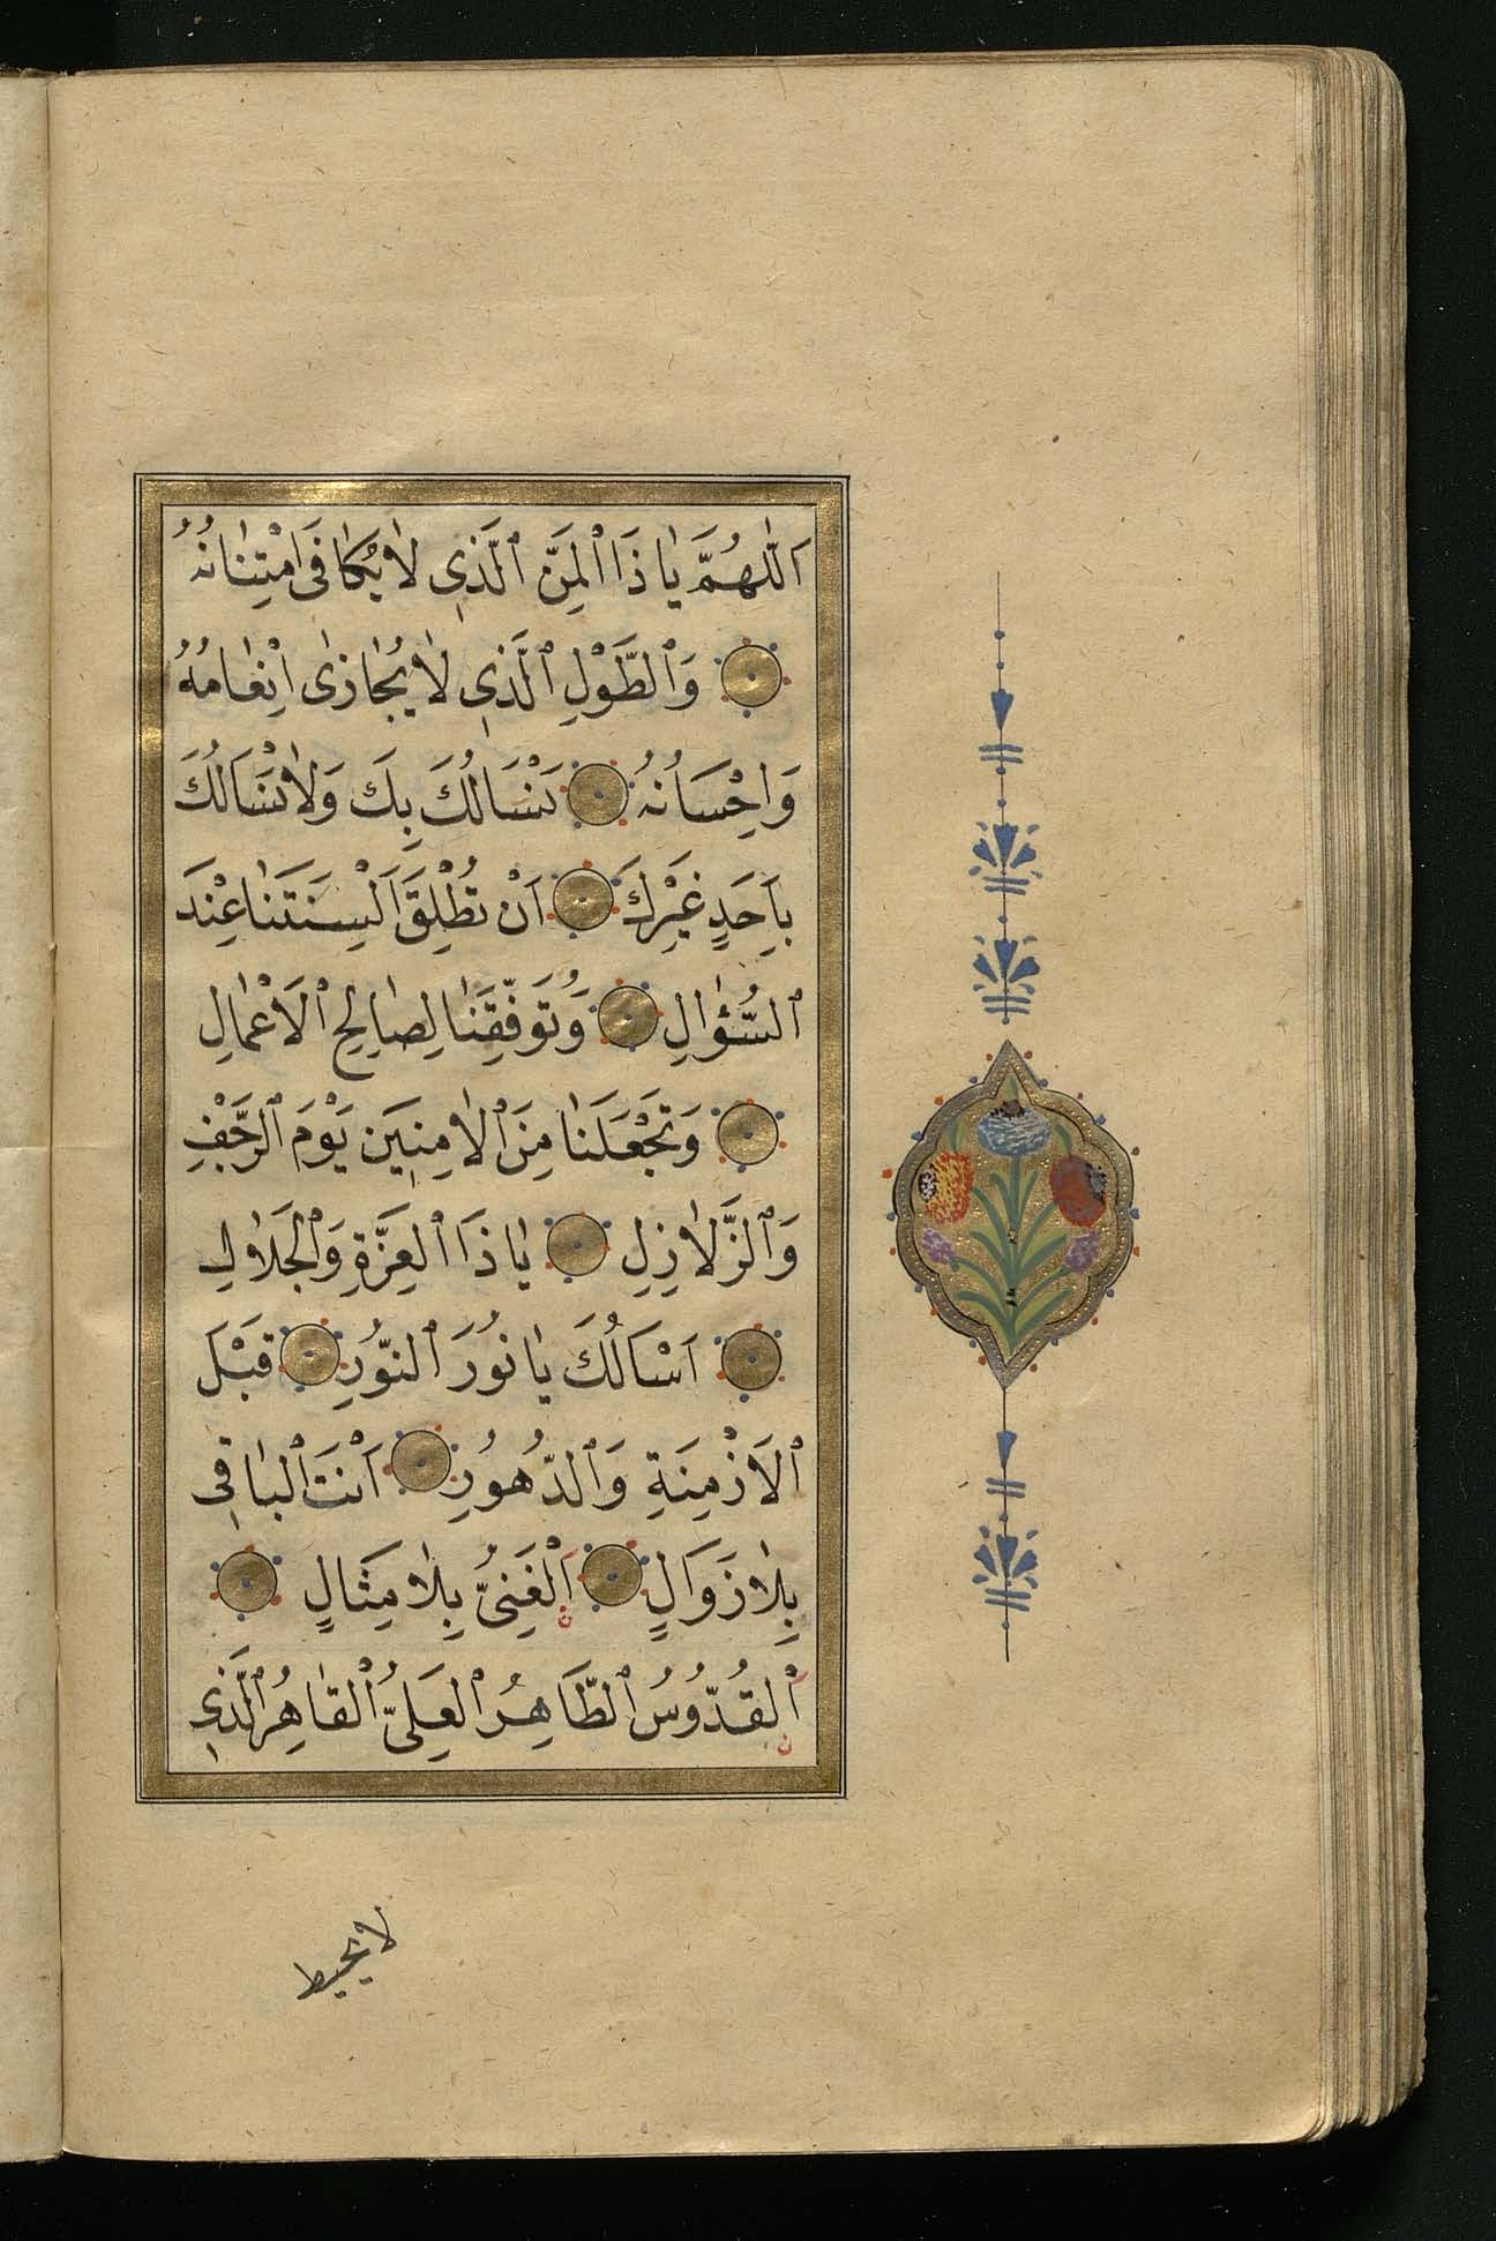 اَللّٰهُمَّ يَا ذَا الْمَنِّ الَّذِي لَا يُكَافَى امْتِنَانُهُ
وَالطَّوْلِ الَّذِي لَا يُجَازٰى اِنْعَامُهُ
وَاِحْسَانُهُ نَسْاَلُكَ بِكَ وَلَا نَسْاَلُكَ
بِاَحَدٍ غَيْرِكَ اَنْ تُطْلِقَ اَلْسِنَتَنَا عِنْدَ
السُّؤَالِ وَتُوَفِّقَنَا لِصَالِحِ الْاَعْمَالِ
وَتَجْعَلَنَا مِنَ الْاٰمِنِينَ يَوْمَ الرَّجْفِ
وَالزَّلَازِلِ يَا ذَا الْعِزَّةِ وَالْجَلَالِ
اَسْاَلُكَ يَا نُورَ النُّورِ قَبْلَ
الْاَزْمِنَةِ وَالدُّهُورِ اَنْتَ الْبَاقِي
بِلَا زَوَالٍ اَلْغَنِيُّ بِلَا مِثَالٍ
ن
اَلْقُدُّوسُ الطَّاهِرُ الْعَلِيُّ الْقَاهِرُ الَّذِي
ن
لا يحيط